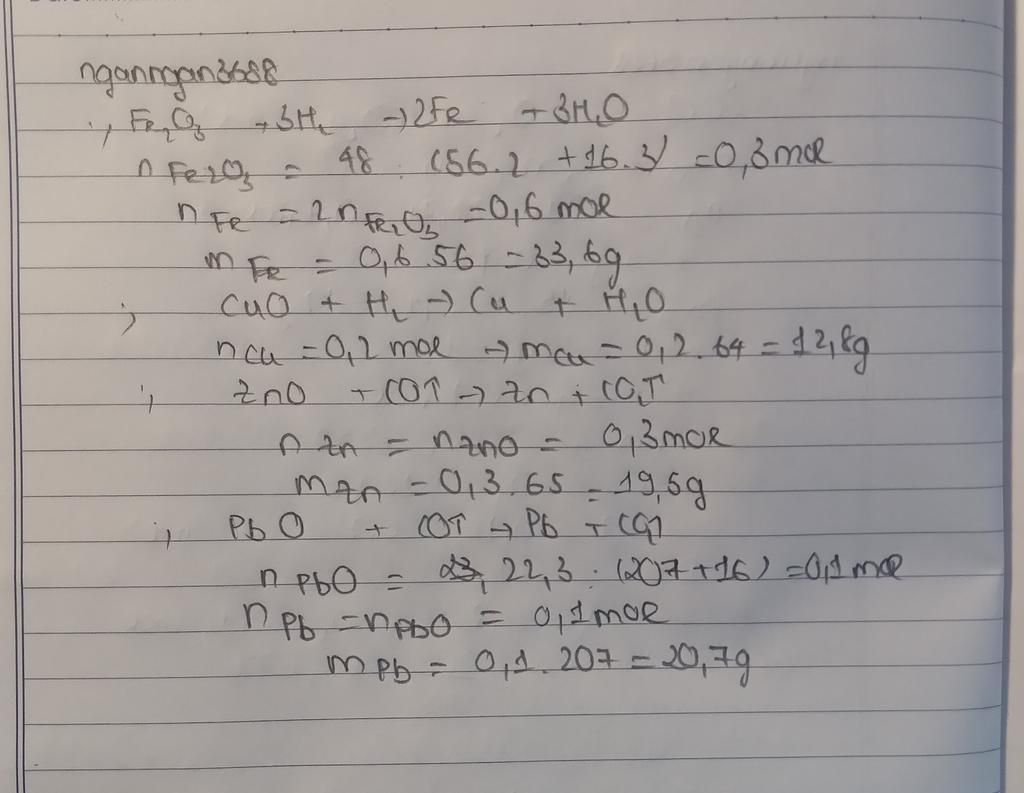 nganngan3688
, Fe₂O₃ + 3H₂ → 2Fe + 3H₂O
n Fe2O3 = 48 : (56.2 + 16.3) = 0,3 mol
n Fe = 2 n Fe₂O₃ = 0,6 mol
m Fe = 0,6 . 56 = 33,6g
; CuO + H₂ → Cu + H₂O
n Cu = 0,2 mol → m Cu = 0,2 . 64 = 12,8g
; ZnO + CO↑ → Zn + CO₂↑
n Zn = n ZnO = 0,3 mol
m Zn = 0,3 . 65 = 19,5g
; PbO + CO↑ → Pb + CO₂↑
n PbO = 22,3 : (207 + 16) = 0,1 mol
n Pb = n PbO = 0,1 mol
m Pb = 0,1 . 207 = 20,7g